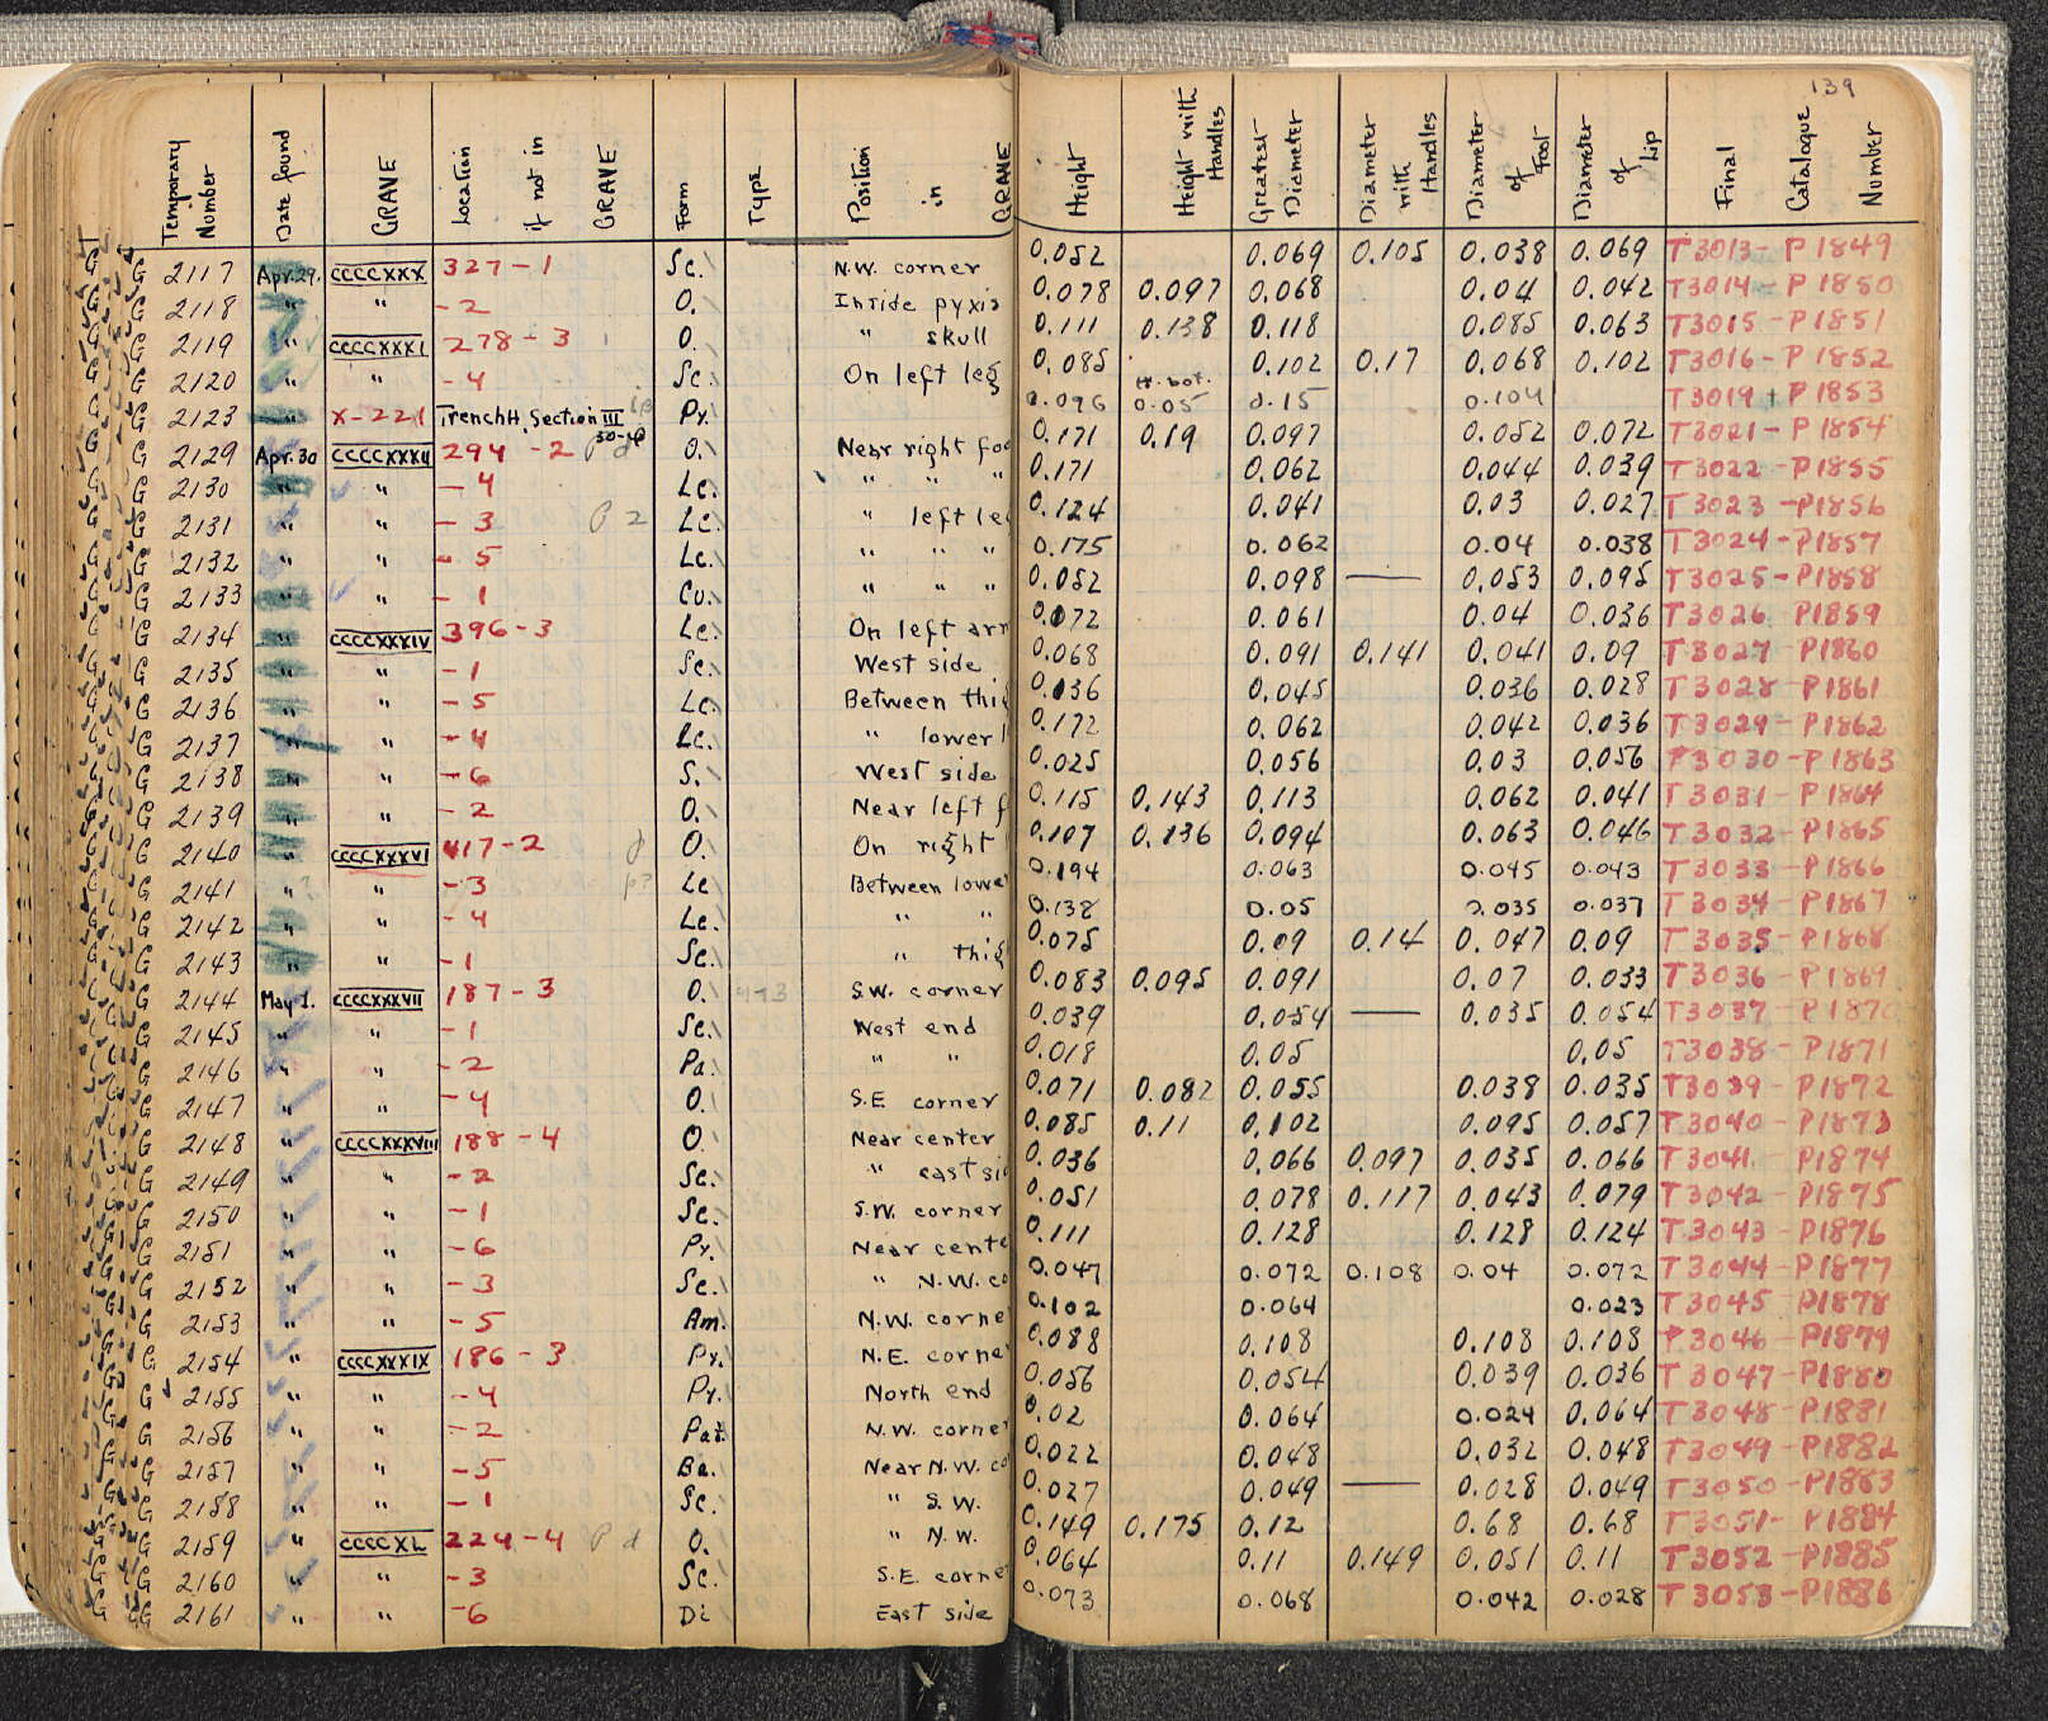 139
Temporary Number | Date found | GRAVE | Location if not in GRAVE | Form | Type | Position in GRAVE | Height | Height with Handles | Greatest Diameter | Diameter with Handles | Diameter of Foot | Diameter of Lip | Final Catalogue Number
G 2117 Apr. 29. CCCCXXX 327-1 Sc. N.W. corner 0.052 0.069 0.105 0.038 0.069 T3013-P1849
G 2118 " " -2 O. Inside pyxis 0.078 0.097 0.068 0.04 0.042 T3014-P1850
G 2119 " CCCCXXXI 278-3 O. " skull 0.111 0.138 0.118 0.085 0.063 T3015-P1851
G 2120 " " -4 Sc. On left leg 0.085 0.102 0.17 0.068 0.102 T3016-P1852
G 2123 " X-221 Trench H, Section III Py. 0.096 0.05 0.15 0.104 T3019 P1853
G 2129 Apr. 30 CCCCXXXII 294-2 O. Near right foo 0.171 0.19 0.097 0.052 0.072 T3021-P1854
G 2130 " " -4 Le. " " " 0.171 0.062 0.044 0.039 T3022-P1855
G 2131 " " -3 P 2 Le. " left leg 0.124 0.041 0.03 0.027 T3023-P1856
G 2132 " " -5 Le. " " " 0.175 0.062 0.04 0.038 T3024-P1857
G 2133 " " -1 Cu. " " " 0.052 0.098 — 0.053 0.095 T3025-P1858
G 2134 " CCCCXXXIV 396-3 Le. On left arm 0.072 0.061 0.04 0.036 T3026 P1859
G 2135 " " -1 Sc. West side 0.068 0.091 0.141 0.041 0.09 T3027-P1860
G 2136 " " -5 Le. Between thig 0.036 0.045 0.036 0.028 T3028-P1861
G 2137 " " -4 Le. " lower l 0.172 0.062 0.042 0.036 T3029-P1862
G 2138 " " -6 S. West side 0.025 0.056 0.03 0.056 T3030-P1863
G 2139 " " -2 O. Near left f 0.115 0.143 0.113 0.062 0.041 T3031-P1864
G 2140 " CCCCXXXVI 417-2 O. On right 0.107 0.136 0.094 0.063 0.046 T3032-P1865
G 2141 " " -3 Le Between lower 0.194 0.063 0.045 0.043 T3033-P1866
G 2142 " " -4 Le. " " 0.138 0.05 0.035 0.037 T3034-P1867
G 2143 " " -1 Sc. " thig 0.075 0.09 0.14 0.047 0.09 T3035-P1868
G 2144 May 1. CCCCXXXVII 187-3 O. S.W. corner 0.083 0.095 0.091 0.07 0.033 T3036-P1869
G 2145 " " -1 Sc. West end 0.039 0.054 — 0.035 0.054 T3037-P1870
G 2146 " " -2 Pa. " " 0.018 0.05 0.05 T3038-P1871
G 2147 " " -4 O. S.E. corner 0.071 0.082 0.055 0.038 0.035 T3039-P1872
G 2148 " CCCCXXXVIII 188-4 O. Near center 0.085 0.11 0.102 0.095 0.057 T3040-P1873
G 2149 " " -2 Sc. " east sid 0.036 0.066 0.097 0.035 0.066 T3041-P1874
G 2150 " " -1 Sc. S.W. corner 0.051 0.078 0.117 0.043 0.079 T3042-P1875
G 2151 " " -6 Py. Near cente 0.111 0.128 0.128 0.124 T3043-P1876
G 2152 " " -3 Sc. " N.W. co 0.047 0.072 0.108 0.04 0.072 T3044-P1877
G 2153 " " -5 Am. N.W. corne 0.102 0.064 0.023 T3045-P1878
G 2154 " CCCCXXXIX 186-3 Py. N.E. corne 0.088 0.108 0.108 0.108 T3046-P1879
G 2155 " " -4 Py. North end 0.056 0.054 0.039 0.036 T3047-P1880
G 2156 " " -2 Pat. N.W. corner 0.02 0.064 0.024 0.064 T3048-P1881
G 2157 " " -5 Ba. Near N.W. co 0.022 0.048 0.032 0.048 T3049-P1882
G 2158 " " -1 Sc. " S.W. 0.027 0.049 — 0.028 0.049 T3050-P1883
G 2159 " CCCCXL 224-4 O. " N.W. 0.149 0.175 0.12 0.68 0.68 T3051-P1884
G 2160 " " -3 Sc. S.E. corne 0.064 0.11 0.149 0.051 0.11 T3052-P1885
G 2161 " " -6 Di East side 0.073 0.068 0.042 0.028 T3053-P1886